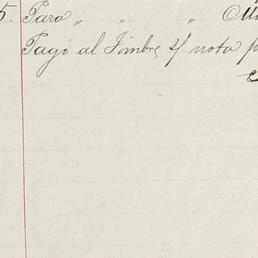 5. Para „ „ „
Pagó al Timbre s/ nota